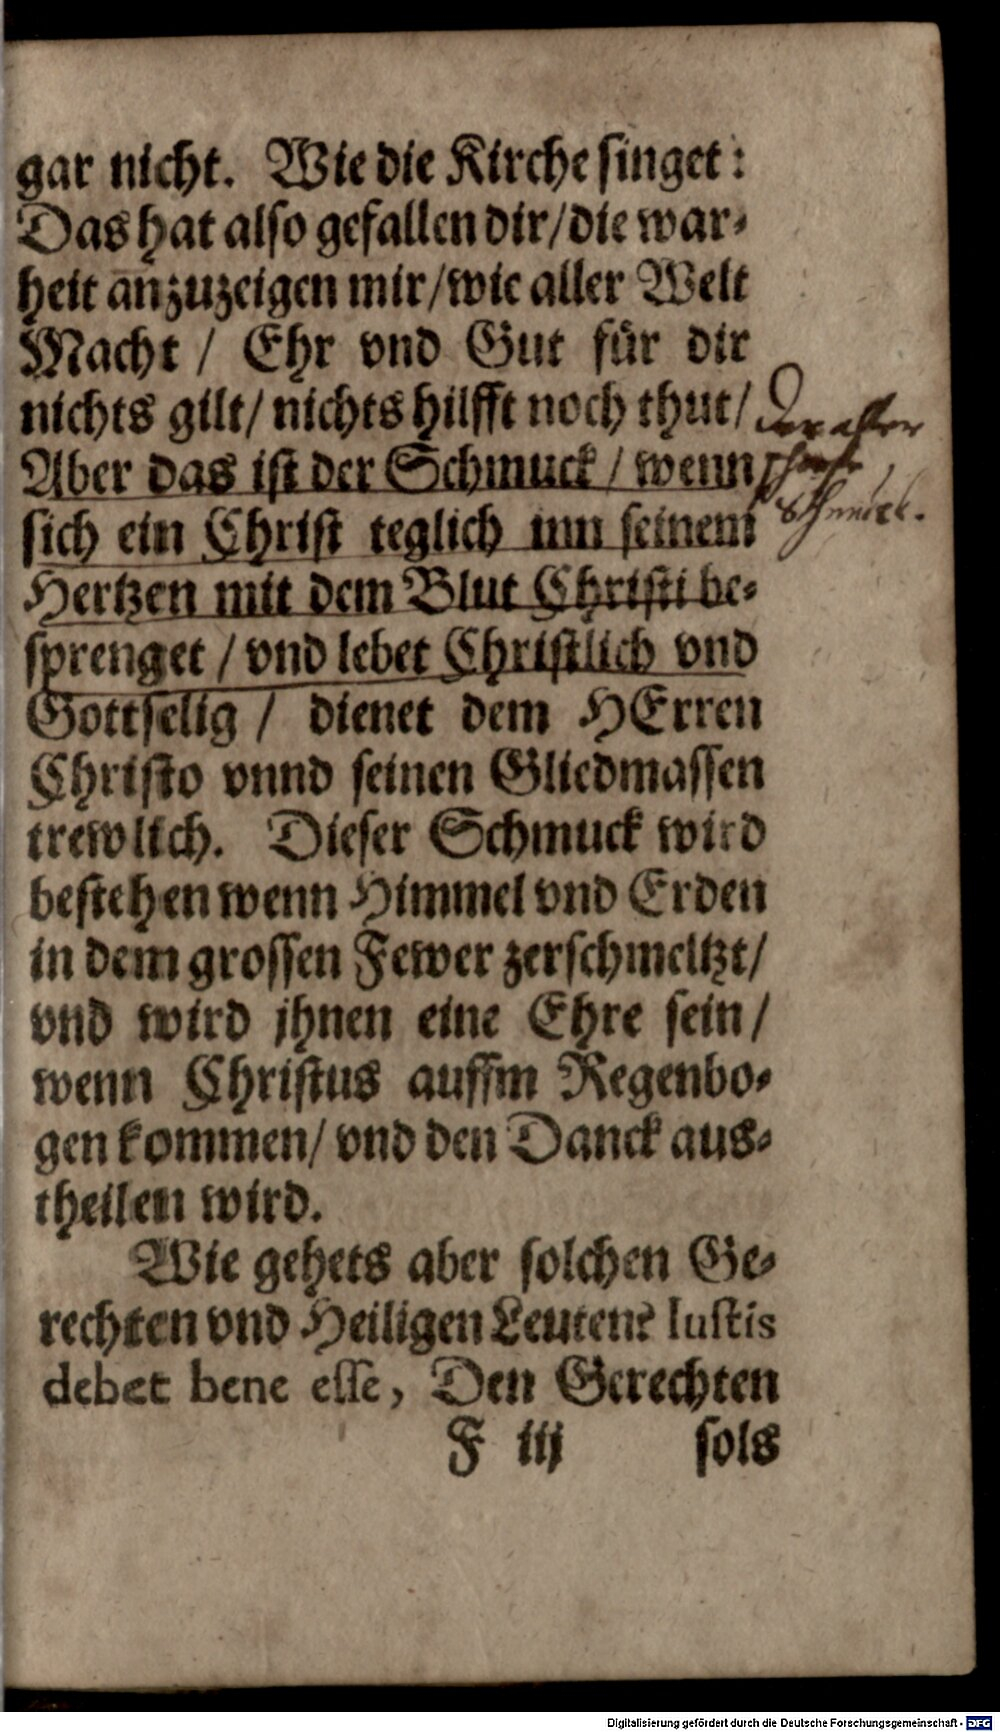 gar nicht. Wie die Kirche singet:
Das hat also gefallen dir/die war-
heit anzuzeigen mir/wie aller Welt
Macht / Ehr vnd Gut für dir
nichts gilt/ nichts hilfft noch thut/
Aber das ist der Schmuck / wenn
sich ein Christ teglich inn seinem
Hertzen mit dem Blut Christi be-
sprenget / vnd lebet Christlich vnd
Gottselig / dienet dem HErren
Christo vnnd seinen Gliedmassen
trewlich. Dieser Schmuck wird
bestehen wenn Himmel vnd Erden
in dem grossen Fewer zerschmeltzt/
vnd wird jhnen eine Ehre sein/
wenn Christus auffm Regenbo-
gen kommen/ vnd den Danck aus-
theilen wird.
Wie gehets aber solchen Ge-
rechten vnd Heiligen Leuten? Iustis
debet bene esse, Den Gerechten
F iij sols
Der aller
Schmuck.
Digitalisierung gefördert durch die Deutsche Forschungsgemeinschaft - DFG